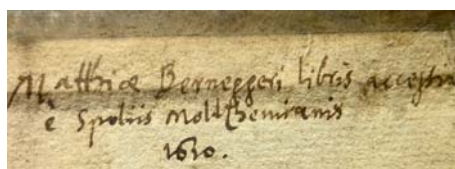 Matthiae Berneggeri libris accessit
è Spoliis Moltzhemianis
1610.